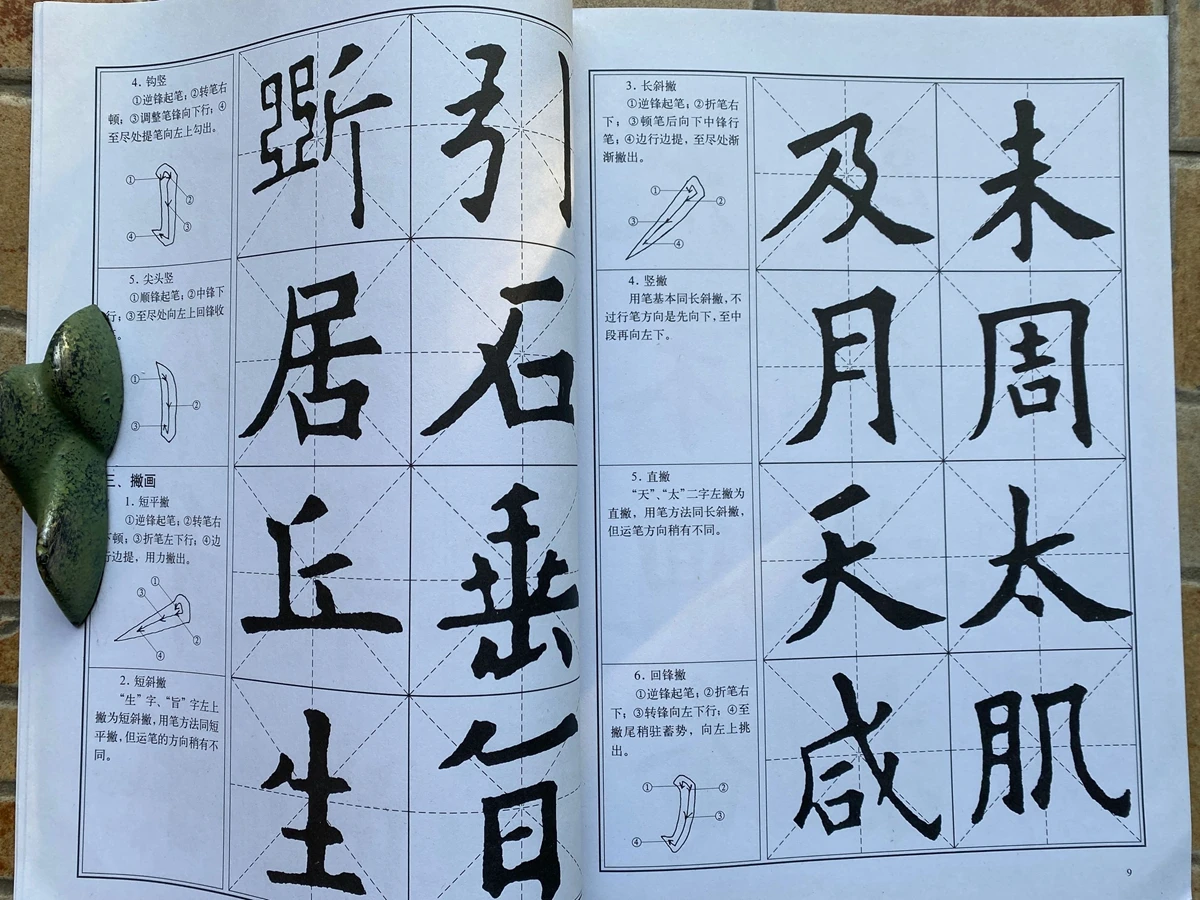 4. 钩竖
①逆锋起笔；②转笔右
顿；③调整笔锋向下行；④
至尽处提笔向左上勾出。
①
②
③
④
引
5. 尖头竖
①顺锋起笔；②中锋下
行；③至尽处向左上回锋收
。
①
②
③
居 石
三、撇画
1. 短平撇
①逆锋起笔；②转笔右
下顿；③折笔左下行；④边
行边提，用力撇出。
①
③
②
④
丘 垂
2. 短斜撇
“生”字、“旨”字左上
撇为短斜撇，用笔方法同短
平撇，但运笔的方向稍有不
同。
生 旨
3. 长斜撇
①逆锋起笔；②折笔右
下；③顿笔后向下中锋行
笔；④边行边提，至尽处渐
渐撇出。
①
②
③
④
及 未
4. 竖撇
用笔基本同长斜撇，不
过行笔方向是先向下，至中
段再向左下。
月 周
5. 直撇
“天”、“太”二字左撇为
直撇，用笔方法同长斜撇，
但运笔方向稍有不同。
天 太
6. 回锋撇
①逆锋起笔；②折笔右
下；③转锋向左下行；④至
撇尾稍驻蓄势，向左上挑
出。
①
②
③
④
咸 肌
9